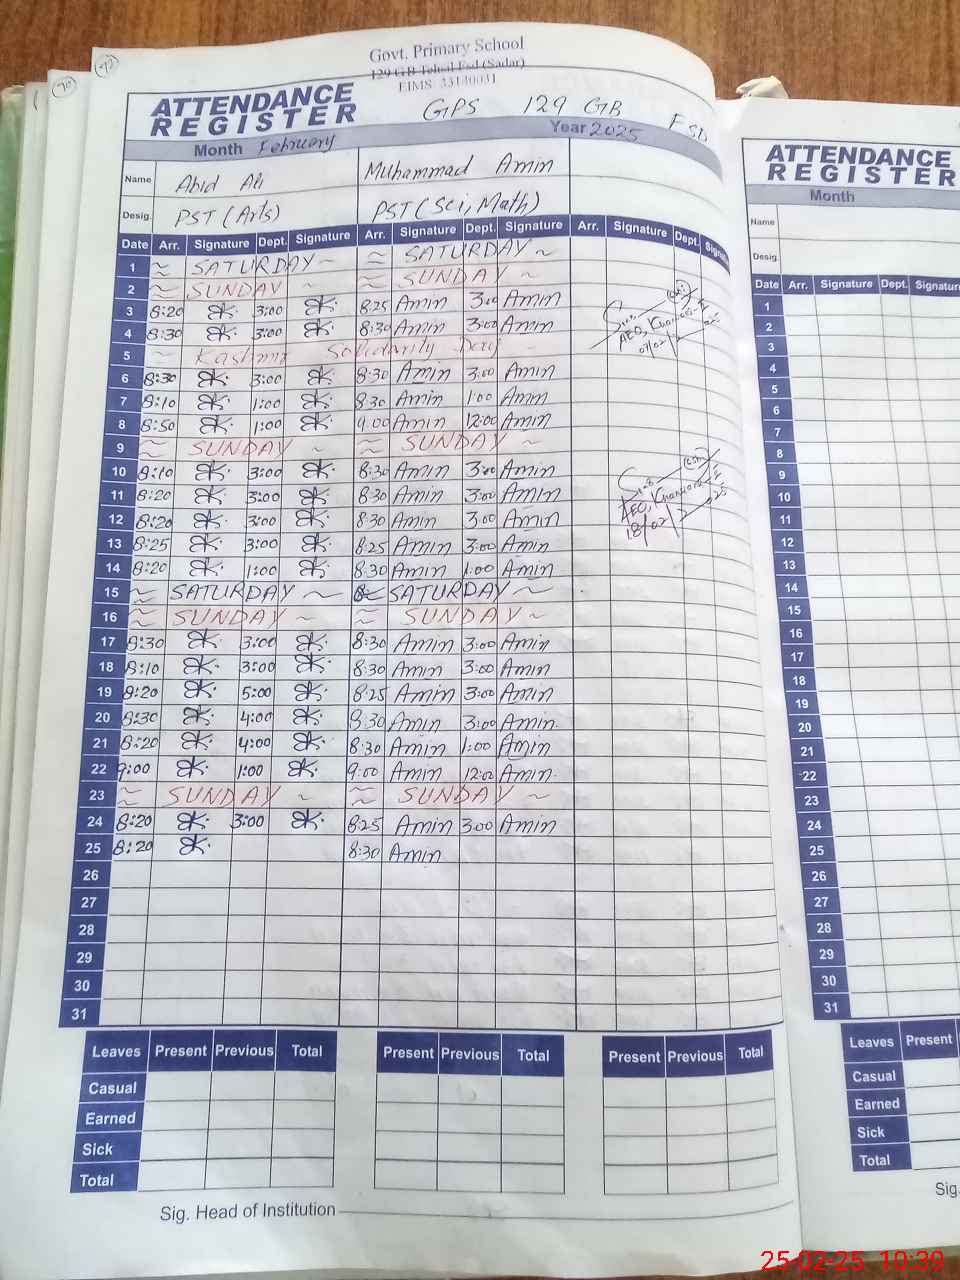 72
70
Govt. Primary School
129 GB Tehsil Fsd (Sadar)
EIMS 33130031
ATTENDANCE REGISTER
GPS 129 GB FSD
Month February Year 2025
Name Abid Ali Muhammad Amin
Desig. PST (Arts) PST (Sci, Math)
Date Arr. Signature Dept. Signature Arr. Signature Dept. Signature Arr. Signature Dept. Signature
1 SATURDAY ~ SATURDAY ~
2 SUNDAY ~ SUNDAY ~
3 8:20 3:00 8:25 Amin 3:00 Amin
4 8:30 3:00 8:30 Amin 3:00 Amin
5 ~ Kashmir Solidarity Day ~
6 8:30 3:00 8:30 Amin 3:00 Amin
7 8:10 1:00 8:30 Amin 1:00 Amin
8 8:50 1:00 9:00 Amin 12:00 Amin
9 SUNDAY ~ SUNDAY ~
10 8:10 3:00 8:30 Amin 3:00 Amin
11 8:20 3:00 8:30 Amin 3:00 Amin
12 8:20 3:00 8:30 Amin 3:00 Amin
13 8:25 3:00 8:25 Amin 3:00 Amin
14 8:20 1:00 8:30 Amin 1:00 Amin
15 SATURDAY ~ SATURDAY ~
16 SUNDAY ~ SUNDAY ~
17 8:30 3:00 8:30 Amin 3:00 Amin
18 8:10 3:00 8:30 Amin 3:00 Amin
19 8:20 5:00 8:25 Amin 3:00 Amin
20 8:30 4:00 8:30 Amin 3:00 Amin
21 8:20 4:00 8:30 Amin 1:00 Amin
22 9:00 1:00 9:00 Amin 12:00 Amin
23 SUNDAY ~ SUNDAY ~
24 8:20 3:00 8:25 Amin 3:00 Amin
25 8:20 8:30 Amin
26
27
28
29
30
31
AEO, Khanuana
07/02
AEO, Khanuana
18/02/25
Leaves Present Previous Total Present Previous Total Present Previous Total
Casual
Earned
Sick
Total
Sig. Head of Institution
ATTENDANCE
REGISTER
Month
Name
Desig.
Date Arr. Signature Dept. Signature
1
2
3
4
5
6
7
8
9
10
11
12
13
14
15
16
17
18
19
20
21
22
23
24
25
26
27
28
29
30
31
Leaves Present
Casual
Earned
Sick
Total
Sig.
25-02-25 10:39